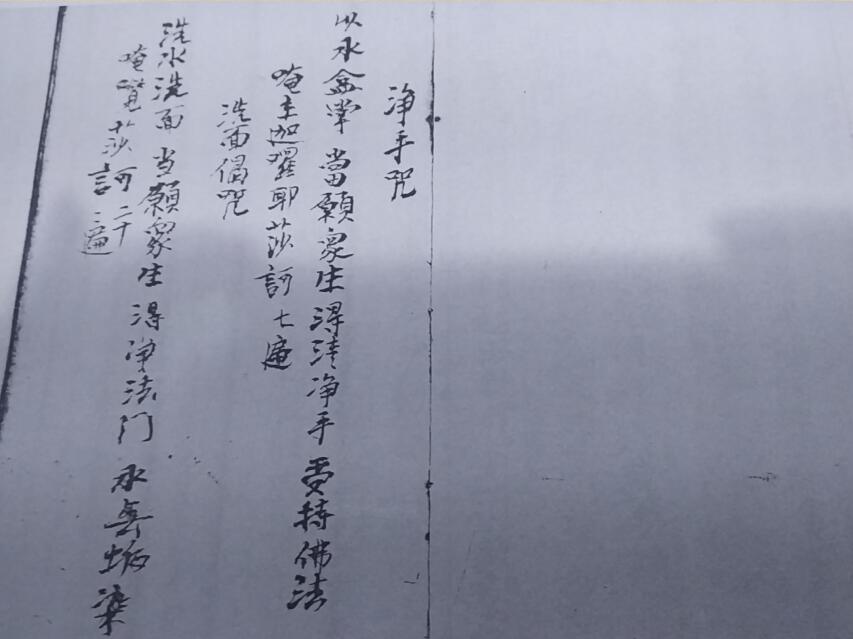 净手咒
以水盆掌 當願衆生 得清净手 受持佛法
唵主迦羅耶莎訶 七遍
洗面偈咒
洗水洗面 当願衆生 得净法门 永無垢染
唵覽莎訶 二十
三遍